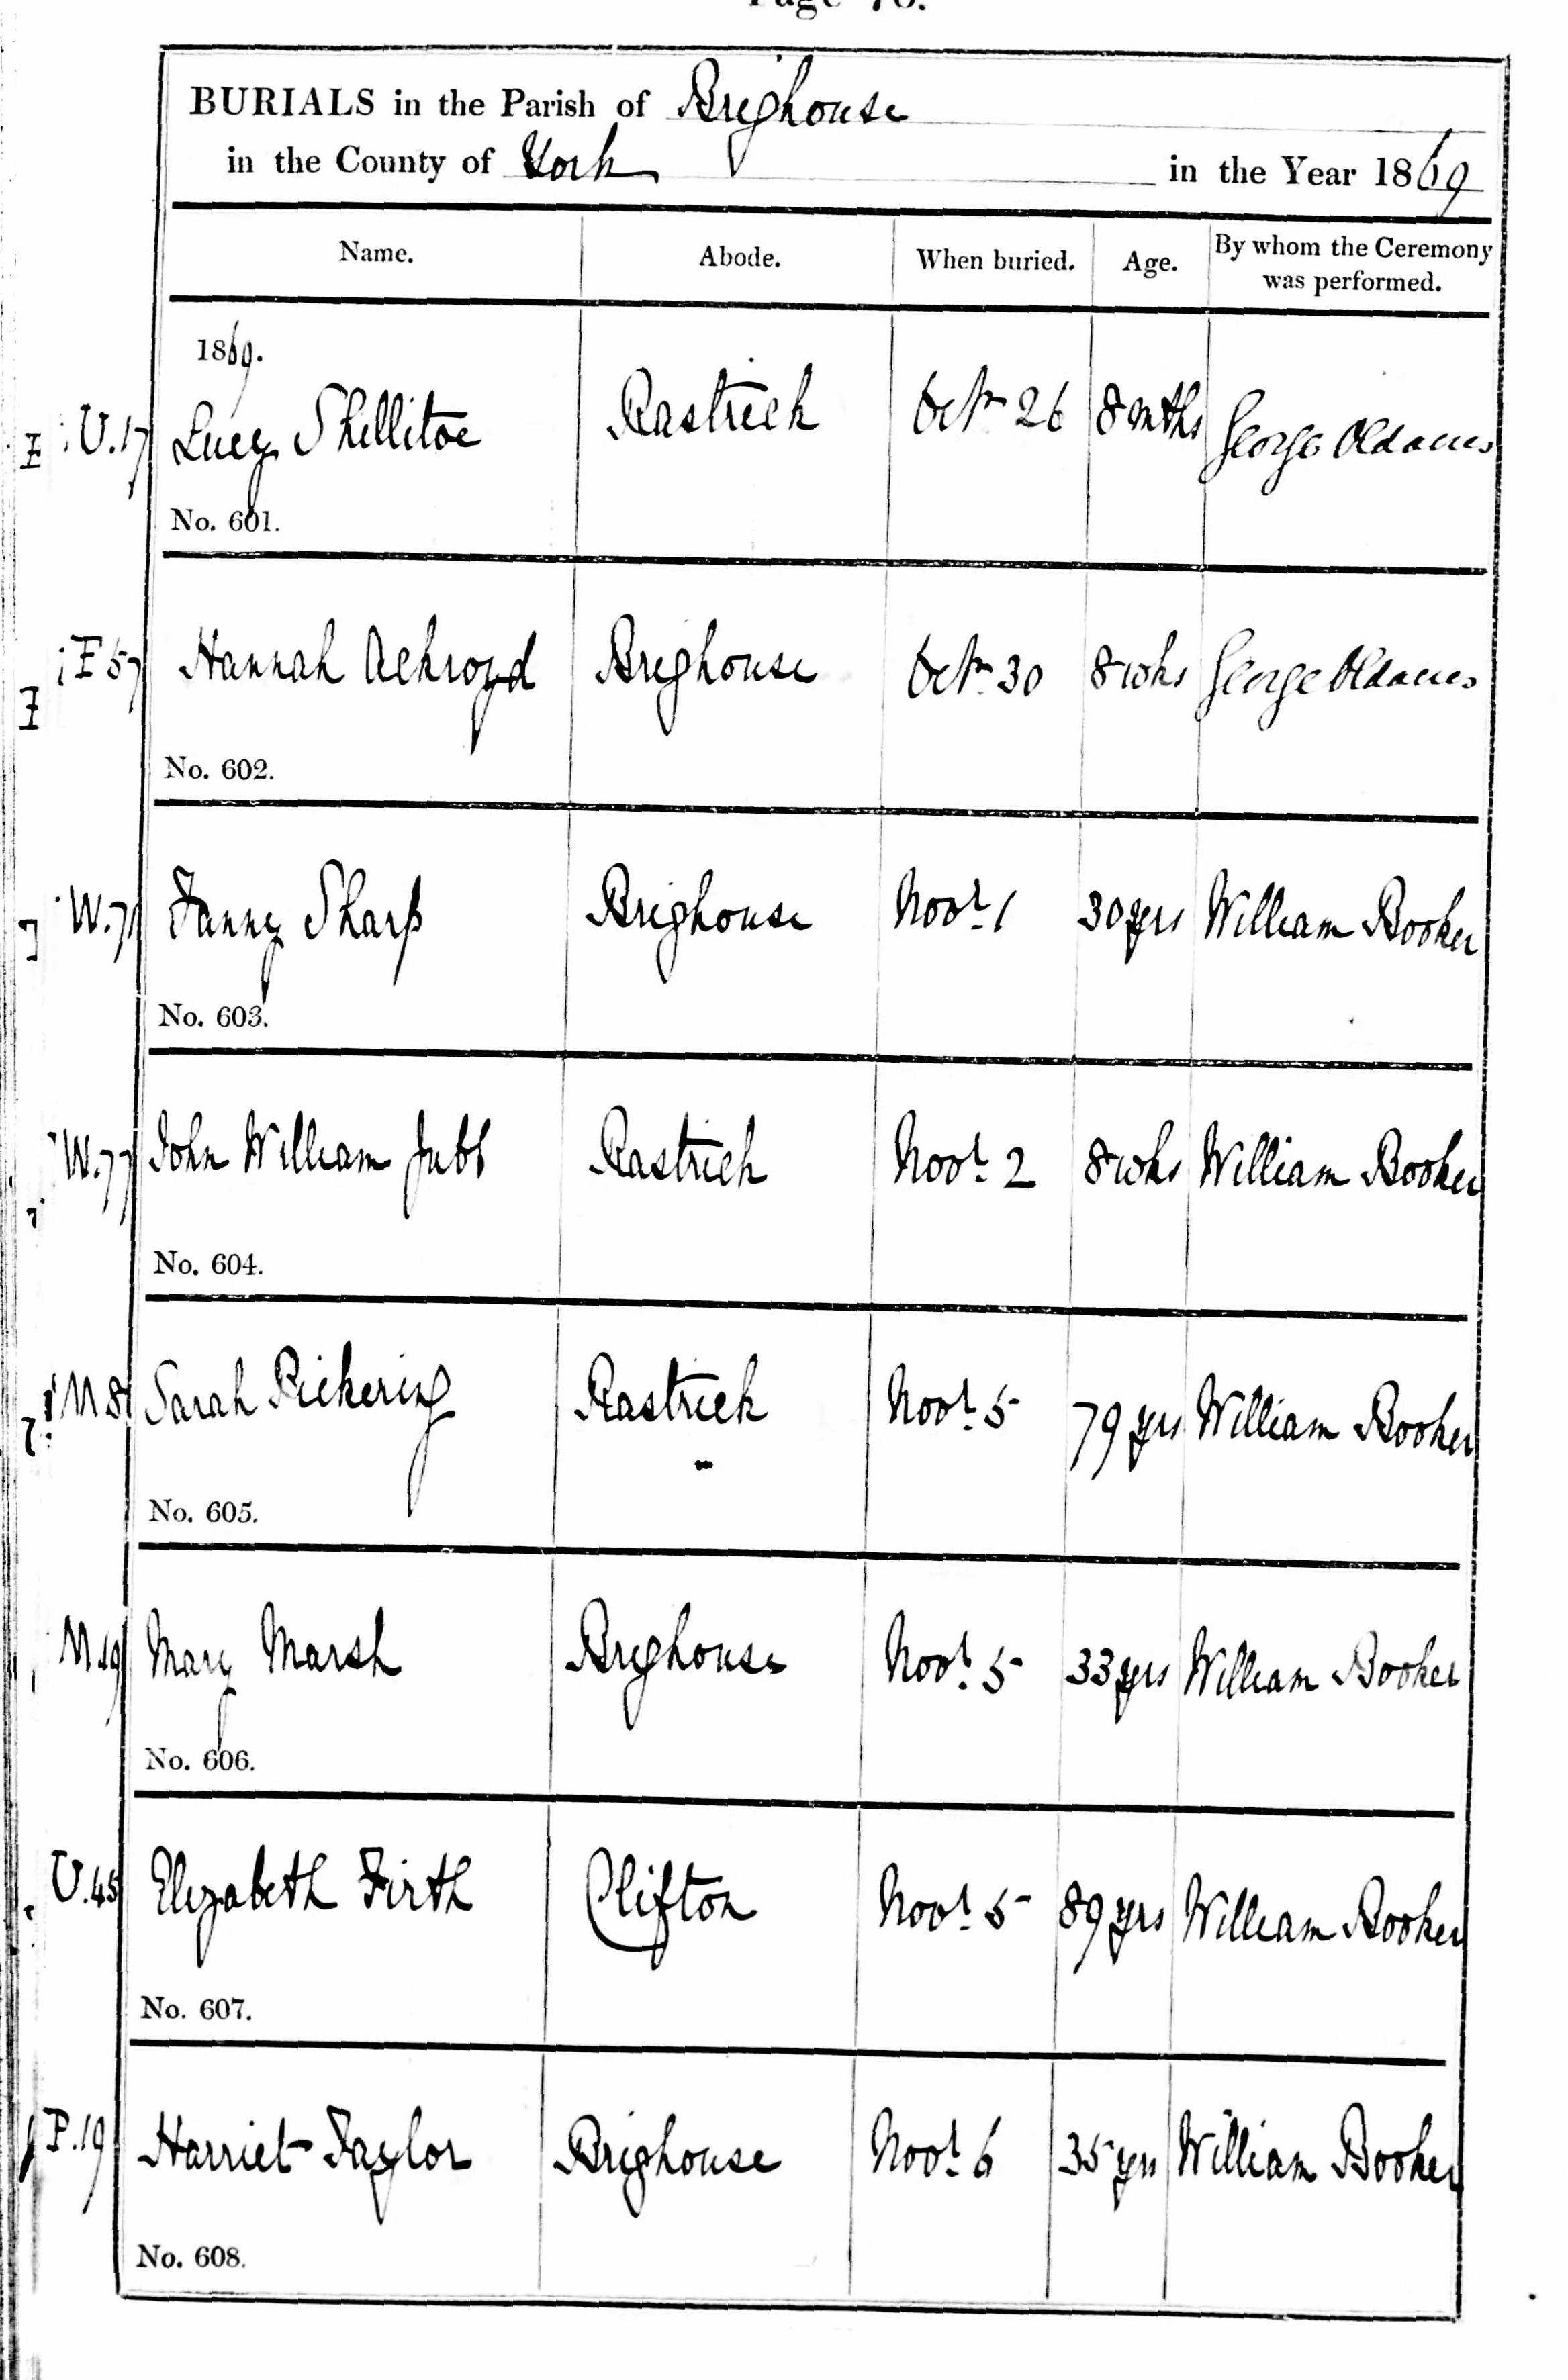 Page 76.
BURIALS in the Parish of Brighouse
in the County of York in the Year 1869
Name. Abode. When buried. Age. By whom the Ceremony was performed.
1869.
U.17 Lucy Shellitoe Rastrick Octr 26 8 mths George Oldacres
No. 601.
E 57 Hannah Ackroyd Brighouse Octr 30 8 wks George Oldacres
No. 602.
W.71 Fanny Sharp Brighouse Novr. 1 30 yrs William Booker
No. 603.
W.77 John William Jubb Rastrick Novr. 2 8 wks William Booker
No. 604.
Sarah Pickering Rastrick Novr. 5 79 yrs William Booker
No. 605.
Mary Marsh Brighouse Novr. 5 33 yrs William Booker
No. 606.
U.45 Elizabeth Firth Clifton Novr. 5 89 yrs William Booker
No. 607.
P.19 Harriet Taylor Brighouse Novr. 6 35 yrs William Booker
No. 608.